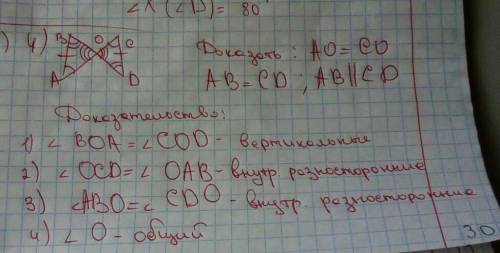 ∠К (∠D) = 80
) 4) B O C
A D
Доказать: AO = CO
AB = CD; AB || CD
Доказательство:
1) ∠BOA = ∠COD - вертикальные
2) ∠OCD = ∠OAB - внутр разносторонние
3) ∠ABO = ∠CDO - внутр разносторонние
4) ∠O - общий
30